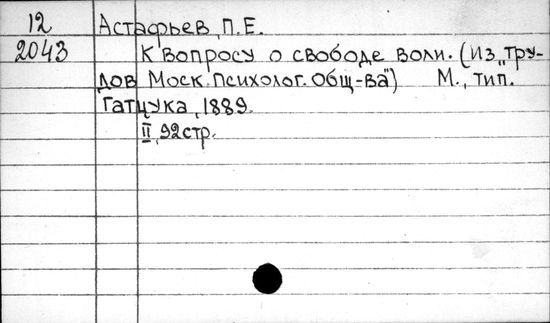 12 Астафьев, П.Е.
2043 К вопросу о свободе воли. (Из „Тру-
дов Моск. Психолог. Общ-ва") М., тип.
Гатцука, 1889.
II, 92 стр.